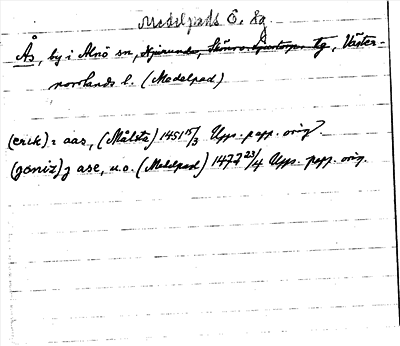 Medelpads Ö. dg
Ås, by i Alnö sn, Njurunda, Sköns o. Ljustorps tg, Väster-
norrlands l. (Medelpad)
(erik) i aas, (Målsta) 1451 15/3 Upps. papp. orig.
(goniz) j ase, u.o. (Medelpad) 1472 23/4 Upps. papp. orig.